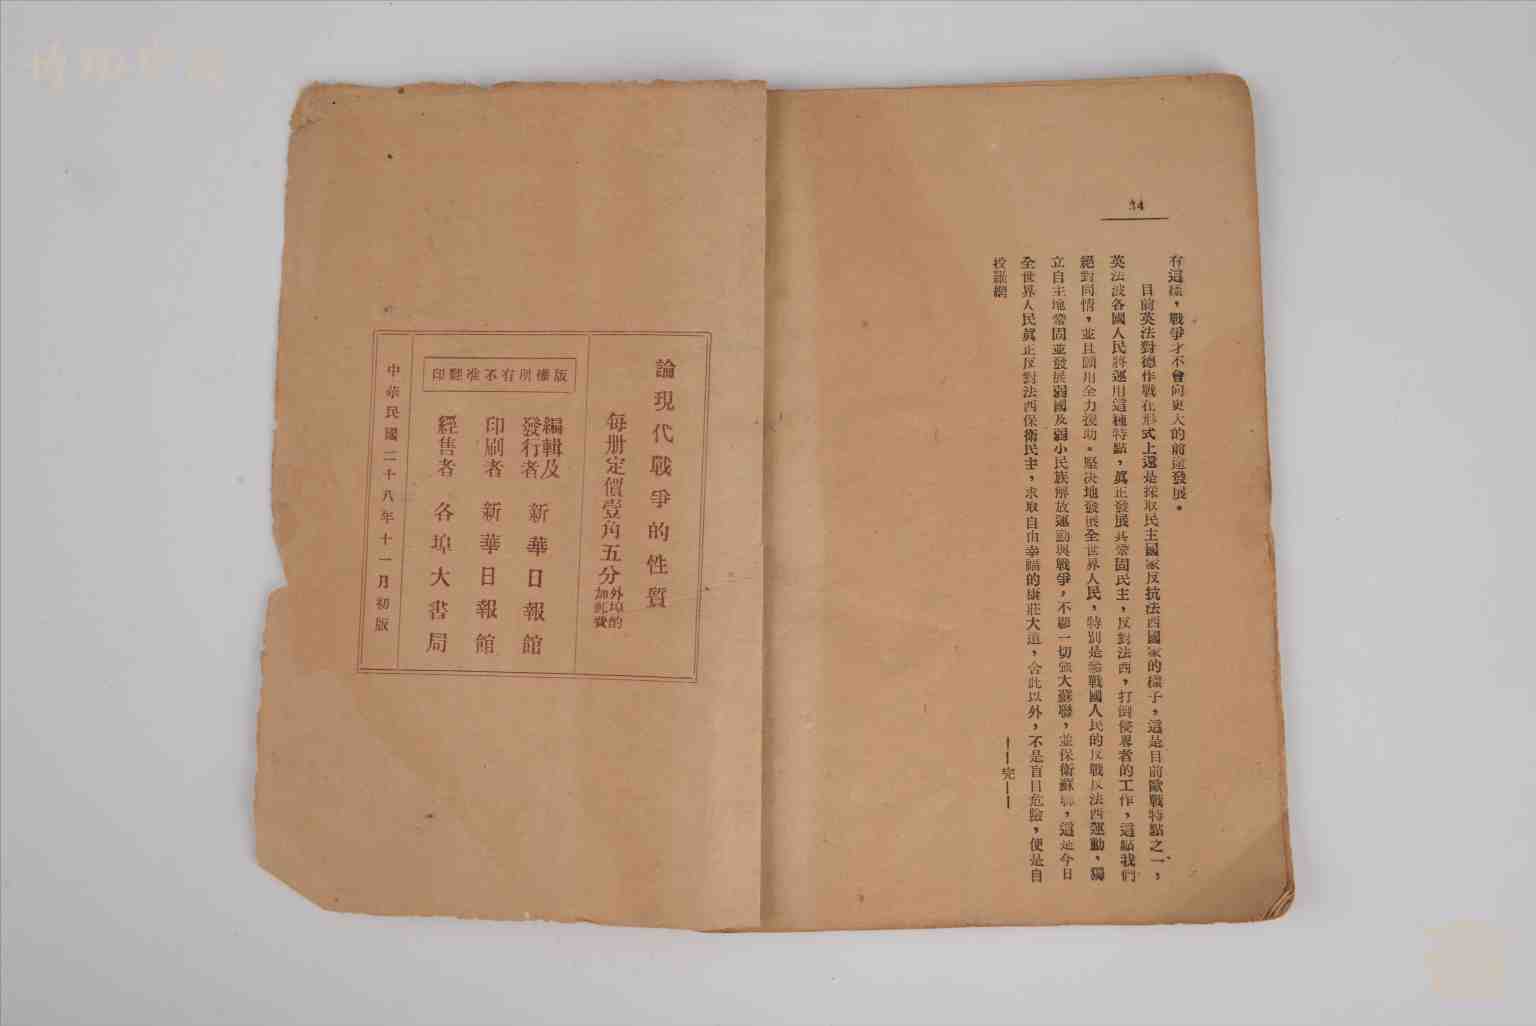 34
有這樣，戰爭才不會向更大的前途發展。
目前英法對德作戰在形式上還是採取民主國家反抗法西國家的樣子，這是目前歐戰特點之一，
英法波各國人民將運用這種特點，眞正發展其鞏固民主，反對法西，打倒侵畧者的工作，這點我們
絕對同情，並且願用全力援助。堅决地發展全世界人民，特別是參戰國人民的反戰反法西運動，獨
立自主地鞏固並發展弱國及弱小民族解放運動與戰爭，不顧一切強大蘇聯，並保衛蘇聯，這是今日
全世界人民眞正反對法西保衛民主，求取自由幸福的康莊大道，舍此以外，不是盲目危險，便是自
投羅網
——完——
論現代戰爭的性質
每册定價壹角五分
外埠酌
加郵費
版權所有不准翻印
編輯及
發行者 新華日報館
印刷者 新華日報館
經售者 各埠大書局
中華民國二十八年十一月初版